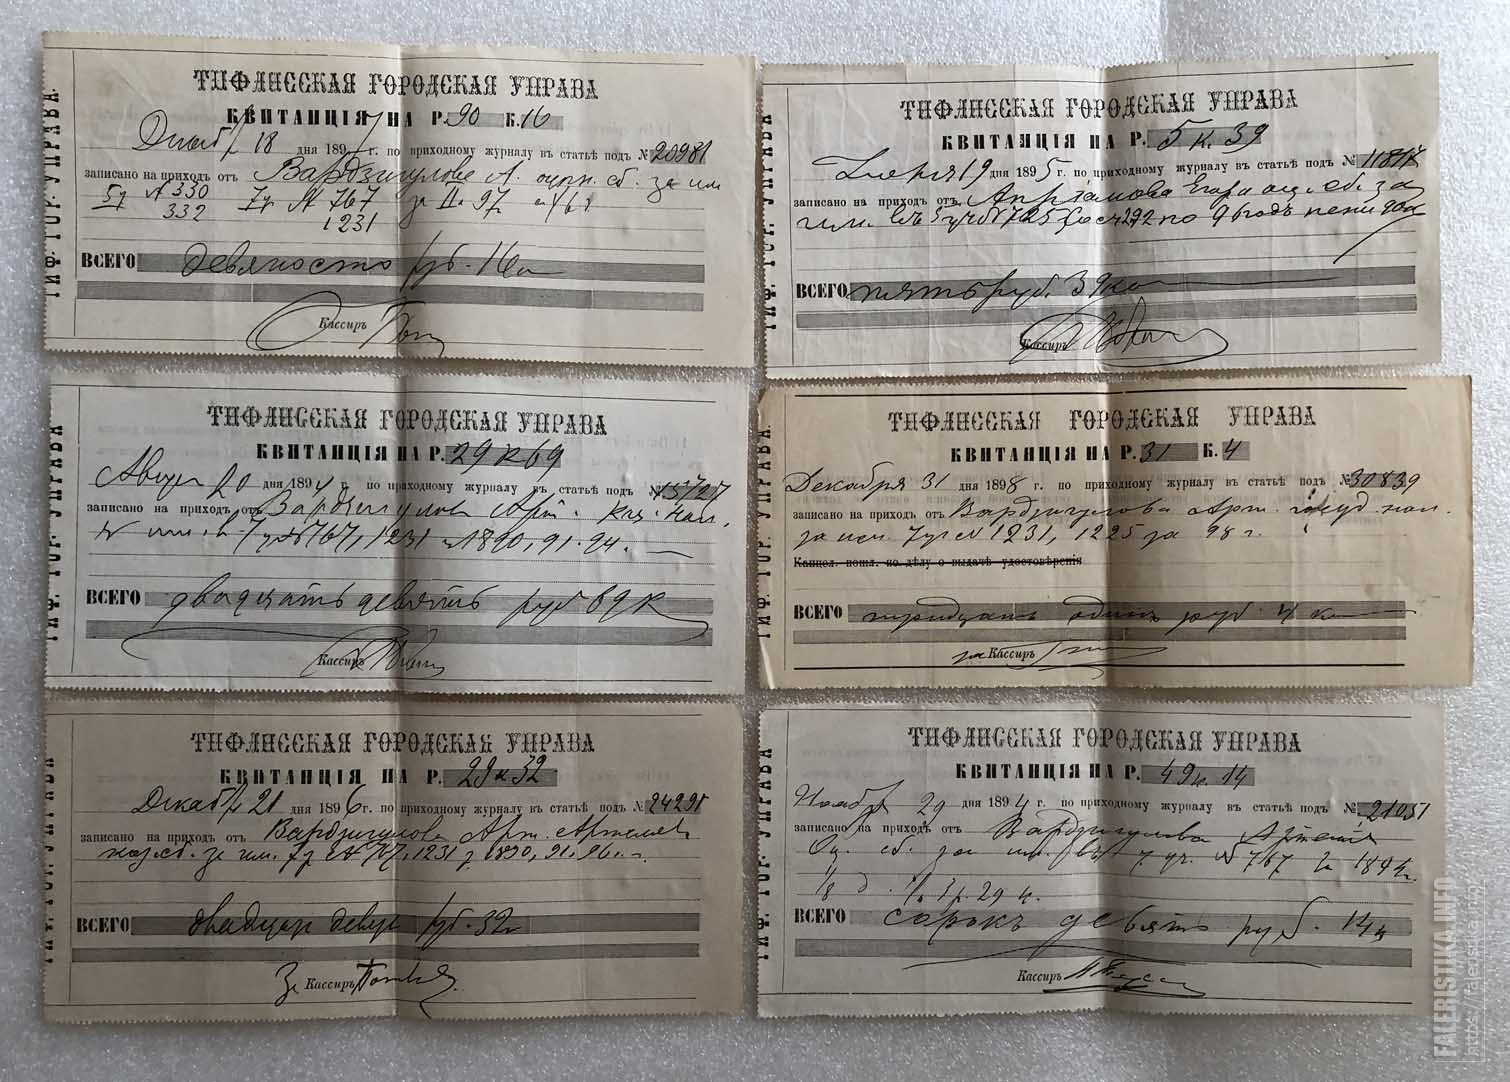 ТИФ. ГОР. УПРАВА.
ТИФЛИССКАЯ ГОРОДСКАЯ УПРАВА
КВИТАНЦІЯ НА Р. 90 К. 16
Декаб 18 дня 1897 г. по приходному журналу въ статьѣ подъ № 20981
записано на приходъ отъ А. оцѣн. сб. за им
5 У № 330 7 У № 767 за 97
332 1231
ВСЕГО девяносто руб. 16 к
Кассиръ
ТИФ. ГОР. УПРАВА.
ТИФЛИССКАЯ ГОРОДСКАЯ УПРАВА
КВИТАНЦІЯ НА Р. 5 к. 39
19 дня 1895 г. по приходному журналу въ статьѣ подъ № 11817
записано на приходъ отъ Егора оц. сб. за
им. въ 5 уч. по 96 годъ пени 90 к
ВСЕГО пять руб. 39 коп
Кассиръ
ТИФ. ГОР. УПРАВА
ТИФЛИССКАЯ ГОРОДСКАЯ УПРАВА
КВИТАНЦІЯ НА Р. 29 к 69
Август 20 дня 1894 г. по приходному журналу въ статьѣ подъ № 15727
записано на приходъ отъ Вардзигулова Арт. каз. нал.
им. в 7 уч № 767, 1231 1890, 91. 94.
ВСЕГО двадцать девять руб 69 к
Кассиръ
ТИФ. ГОР. УПРАВА.
ТИФЛИССКАЯ ГОРОДСКАЯ УПРАВА
КВИТАНЦІЯ НА Р. 31 К. 4
Декабря 31 дня 1898 г. по приходному журналу въ статьѣ подъ № 30839
записано на приходъ отъ Вардзигулова Арт. нал.
за им. 7 уч № 1231, 1225 за 98 г.
Канцел. пошл. по дѣлу о выдачѣ удостовѣренія
ВСЕГО тридцать один руб 4 ко
за Кассиръ
ТИФ. ГОР. УПРАВА
ТИФЛИССКАЯ ГОРОДСКАЯ УПРАВА
КВИТАНЦІЯ НА Р. 29 к 32
Декаб 21 дня 1896 г. по приходному журналу въ статьѣ подъ № 24291
записано на приходъ отъ Вардзигулова Арт.
каз. сб. за им. 7 у № 767, 1231 з 1890, 91. 96 г.
ВСЕГО двадцат девят руб. 32 к
За Кассиръ
ТИФ. ГОР. УПРАВА
ТИФЛИССКАЯ ГОРОДСКАЯ УПРАВА
КВИТАНЦІЯ НА Р. 49 к. 14
Нояб 29 дня 1894 г. по приходному журналу въ статьѣ подъ № 21051
записано на приходъ отъ Вардзигулова Артемія
Оц. сб. за им. въ 7 уч. № 767 за 1894 г.
3 р. 29 к.
ВСЕГО сорокъ девять руб. 14 к
Кассиръ
FALERISTIKA.INFO
https://faleristika.info/